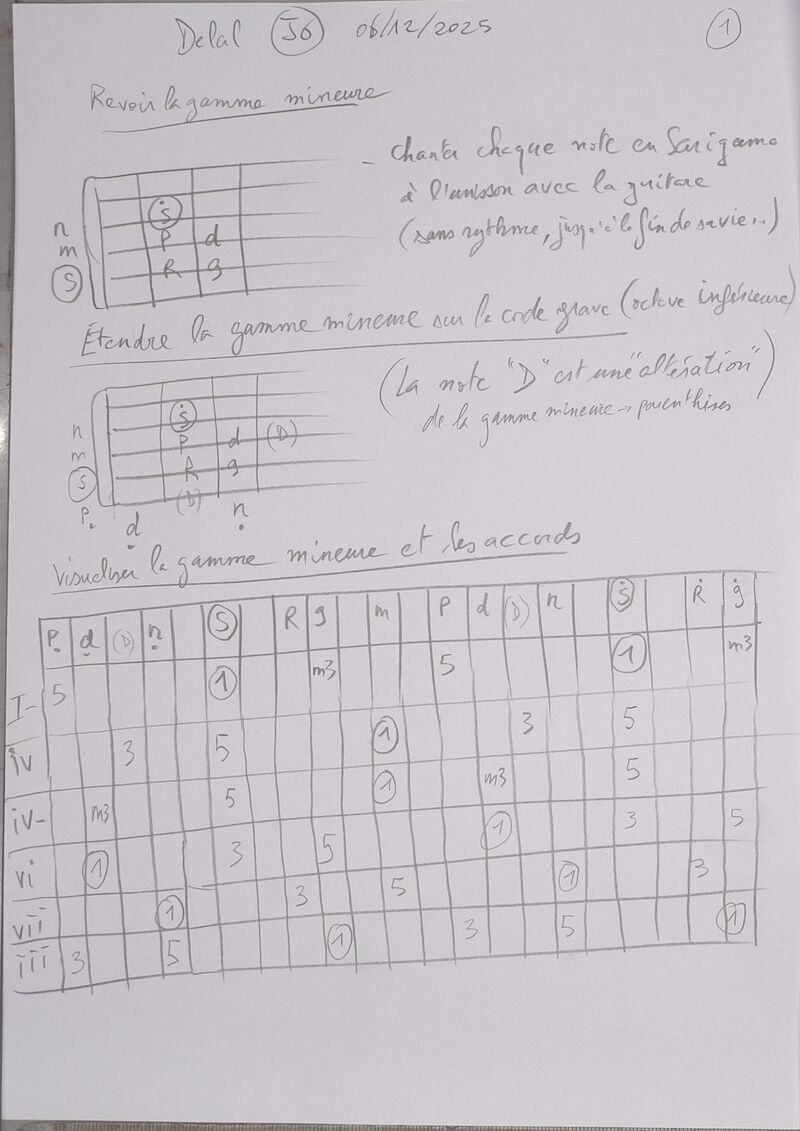 Delal J6 06/12/2025 1
Revoir la gamme mineure
- Chanter chaque note en Sarigama
à l'unisson avec la guitare
(sans rythme, jusqu'à la fin de sa vie...)
ṡ
n P d
m R g
S
Étendre la gamme mineure sur la corde grave (octave inférieure)
(La note "D" est une "altération")
de la gamme mineure → parenthèses
ṡ
n P d (D)
m R g
S (D)
P. ḍ ṇ
Visualiser la gamme mineure et les accords
P̣ ḍ (D) ṇ S R g m P d (D) n Ṡ Ṙ ġ
I- 5 1 m3 5 1 m3
iv 3 5 1 3 5
iv- m3 5 1 m3 5
vi 1 3 5 1 3 5
vii 1 3 5 1 3
iii 3 5 1 3 5 1